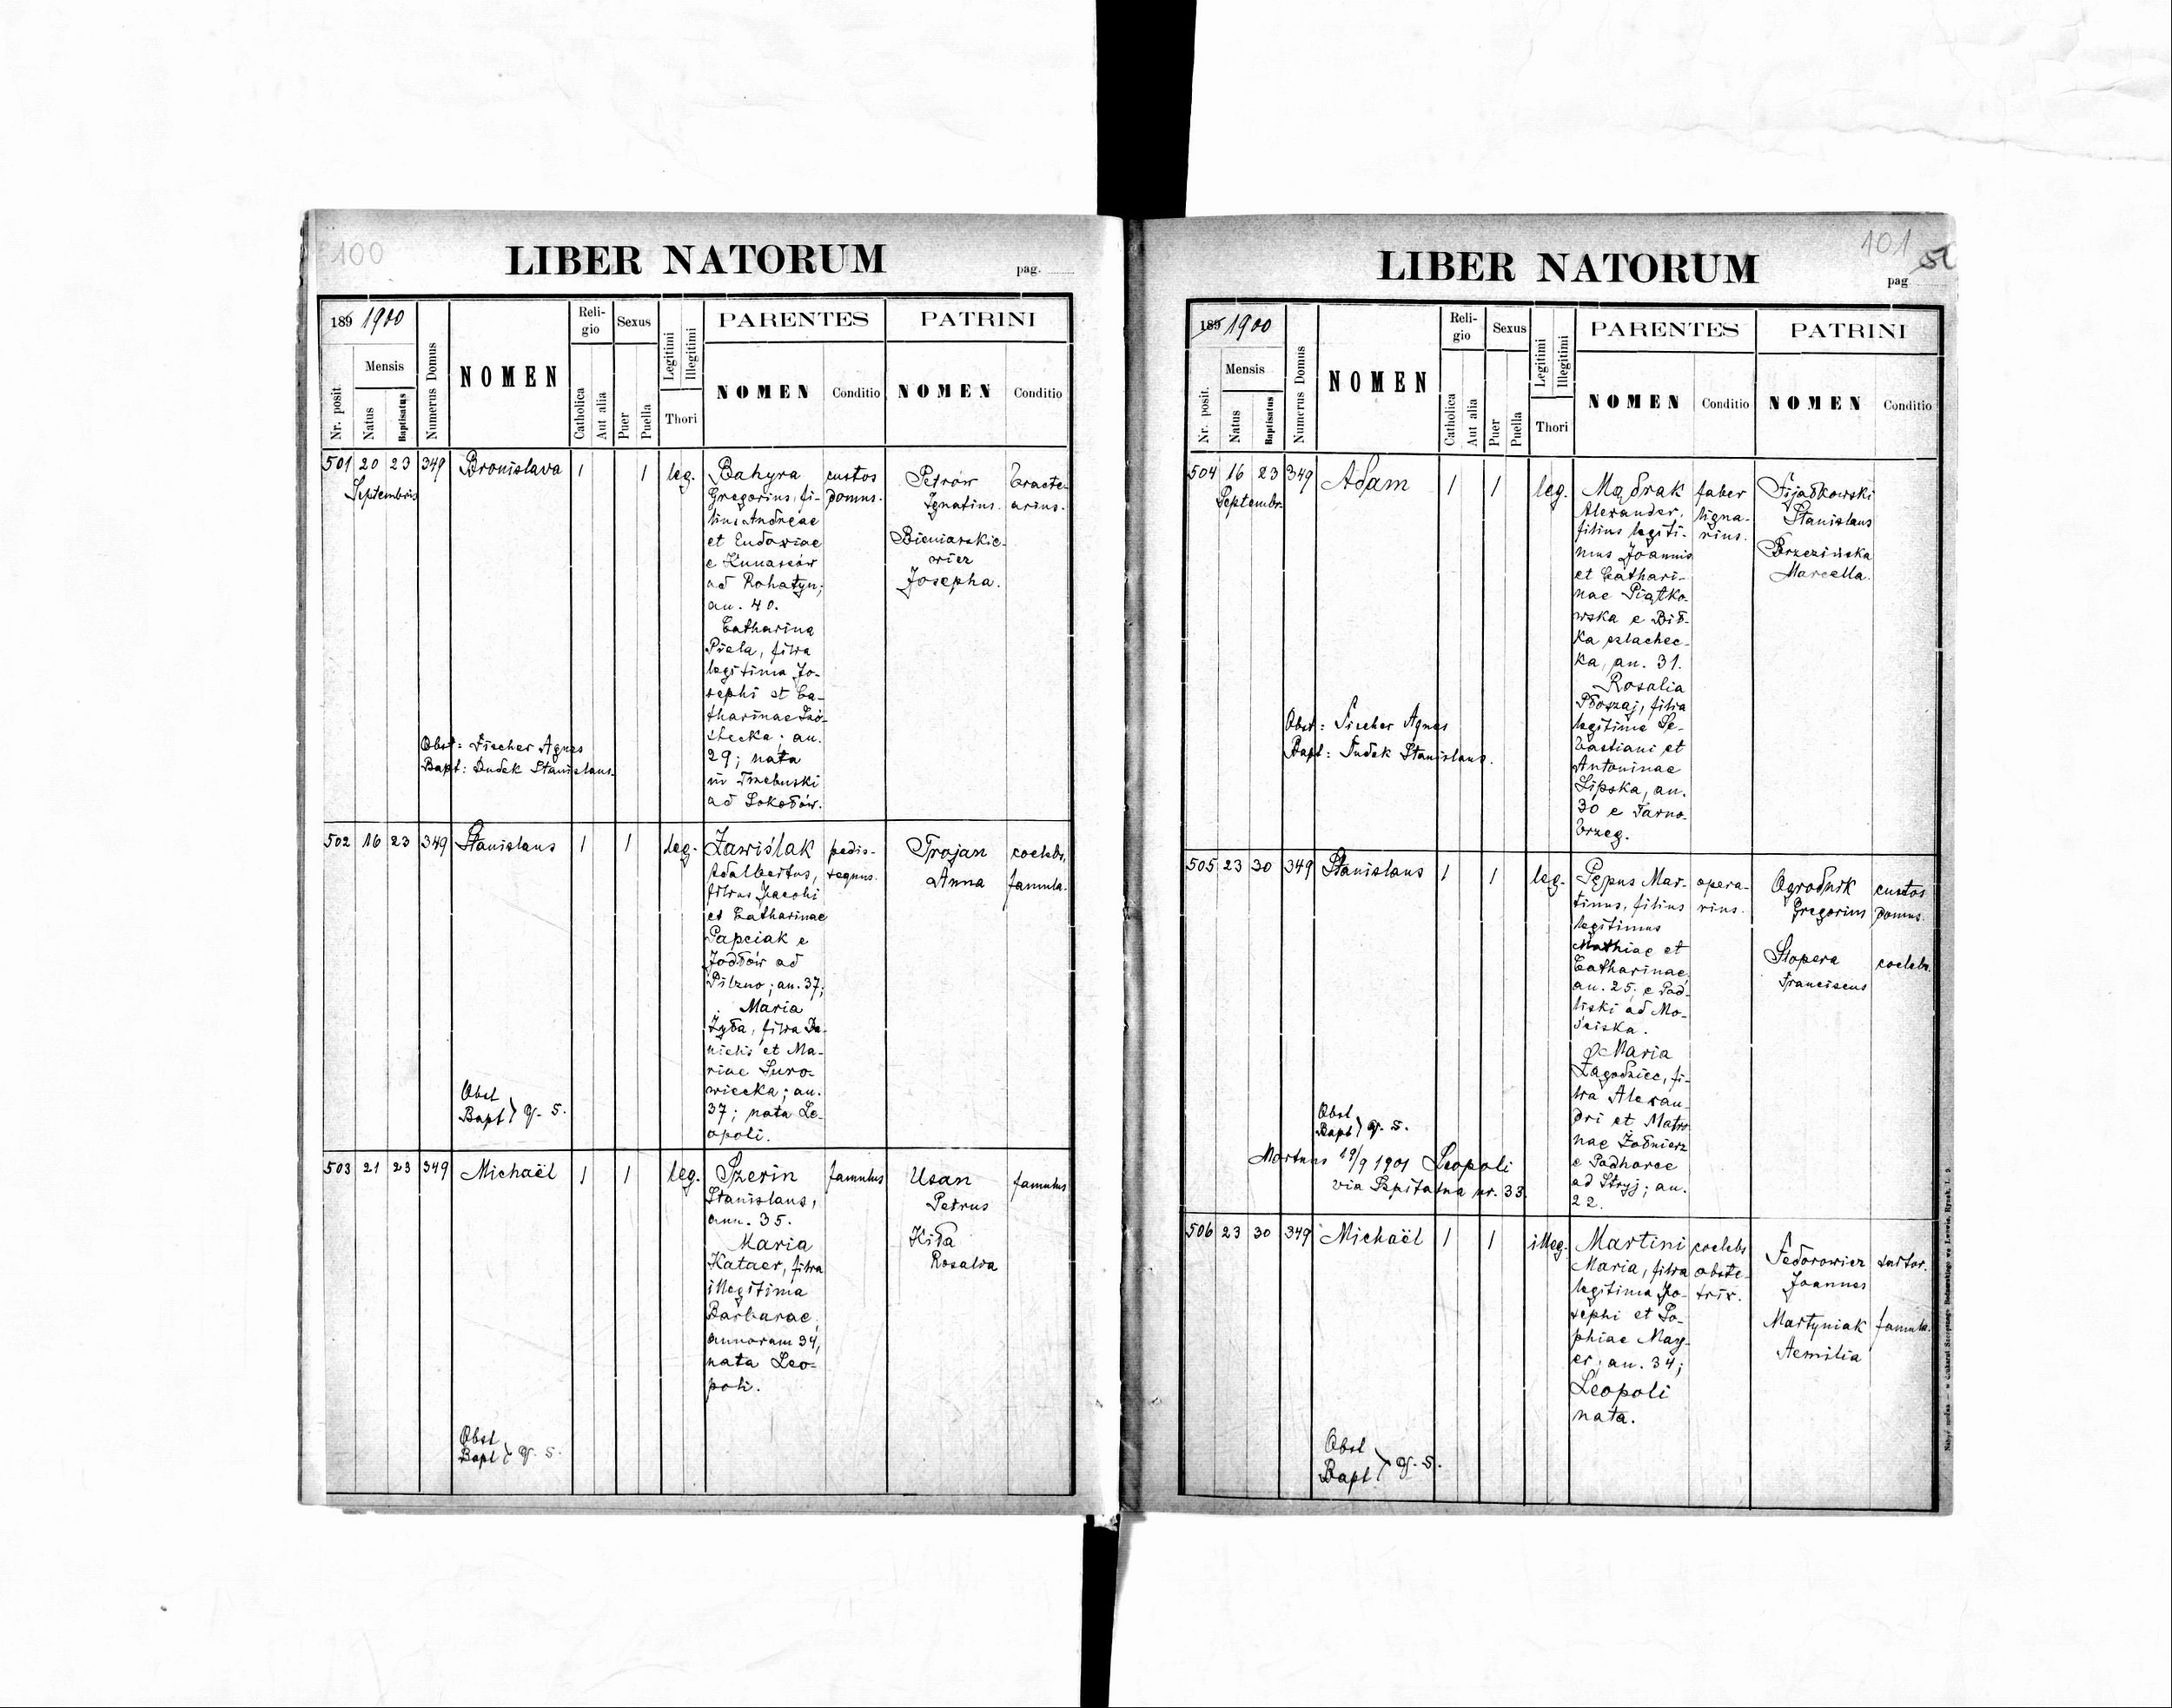 100
LIBER NATORUM
pag.
189 1900
Nr. posit.
Mensis
Natus
Baptisatus
Numerus Domus
NOMEN
Reli-
gio
Catholica
Aut alia
Sexus
Puer
Puella
Legitimi
Illegitimi
Thori
PARENTES
NOMEN
Conditio
PATRINI
NOMEN
Conditio
501 20 23 349 Bronislava 1 1 leg.
Septembris
Gregorius, fi-
lius Andreae
et Eudoxiae
ad Rohatyn;
an. 40.
Catharina
Piela, filia
legitima Jo-
sephi et Ca-
tharinae
an.
29; nata
in Trzebuski
ad Sokołów.
custos
domus.
Petrów
Ignatius.
Josepha.
Obst: Fischer Agnes
Bapt: Dudek Stanislaus.
502 16 23 349 Stanislaus 1 1 leg.
Zawiślak
Adalbertus,
filius Jacobi
et Catharinae
Papciak e
Jodłów ad
Pilzno; an. 37;
Maria
Żyła, filia Da-
nielis et Ma-
riae Suro-
wiecka; an.
37; nata Le-
opoli.
pedis-
sequus.
Trojan
Anna
coelebs,
famula.
Obst
Bapt } q. s.
503 21 23 349 Michaël 1 1 leg.
Szerin
Stanislaus,
ann. 35.
Maria
Kataer, filia
illegitima
Barbarae,
annorum 34,
nata Leo-
poli.
famulus
Usan
Petrus
Kiła
Rosalia
famulus
Obst
Bapt } q. s.
101
LIBER NATORUM
pag
51
189 1900
Nr. posit.
Mensis
Natus
Baptisatus
Numerus Domus
NOMEN
Reli-
gio
Catholica
Aut alia
Sexus
Puer
Puella
Legitimi
Illegitimi
Thori
PARENTES
NOMEN
Conditio
PATRINI
NOMEN
Conditio
504 16 23 349 Adam 1 1 leg.
Septembr.
Mądrak
Alexander,
filius legiti-
mus Joannis
et Cathari-
nae Piątko-
wska e Dił-
ka szlachec-
ka, an. 31.
Rosalia
Płoszaj, filia
legitima Se-
bastiani et
Antoninae
Lipska, an.
30 e Tarno-
brzeg.
faber
ligna-
rius.
Fijałkowski
Stanislaus
Brzezińska
Marcella.
Obst: Fischer Agnes
Bapt: Dudek Stanislaus.
505 23 30 349 Stanislaus 1 1 leg.
Pępus Mar-
tinus, filius
legitimus
Mathiae et
Catharinae,
an. 25; e Pod-
liski ad Mo-
ściska.
Maria
Zagodziec, fi-
lia Alexan-
dri et Matro-
nae Żołnierz
e Podhorce
ad Stryj; an.
22.
opera-
rius.
Ogrodnik
Gregorius
custos
domus.
Stopera
Franciscus
coelebs.
Obst
Bapt } q. s.
Mortuus 19/9 1901 Leopoli
via Szpitalna nr. 33.
506 23 30 349 Michaël 1 1 illeg.
Martini
Maria, filia
legitima Jo-
sephi et So-
phiae May-
er; an. 34;
Leopoli
nata.
coelebs
obste-
trix.
Fedorowicz
Joannes
sutor.
Martyniak
Aemilia
famula.
Obst
Bapt } q. s.